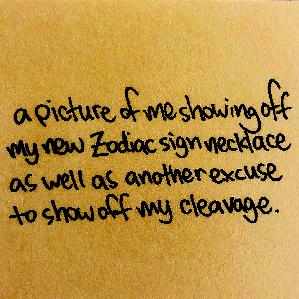 a picture of me showing off
my new Zodiac sign necklace
as well as another excuse
to show off my cleavage.